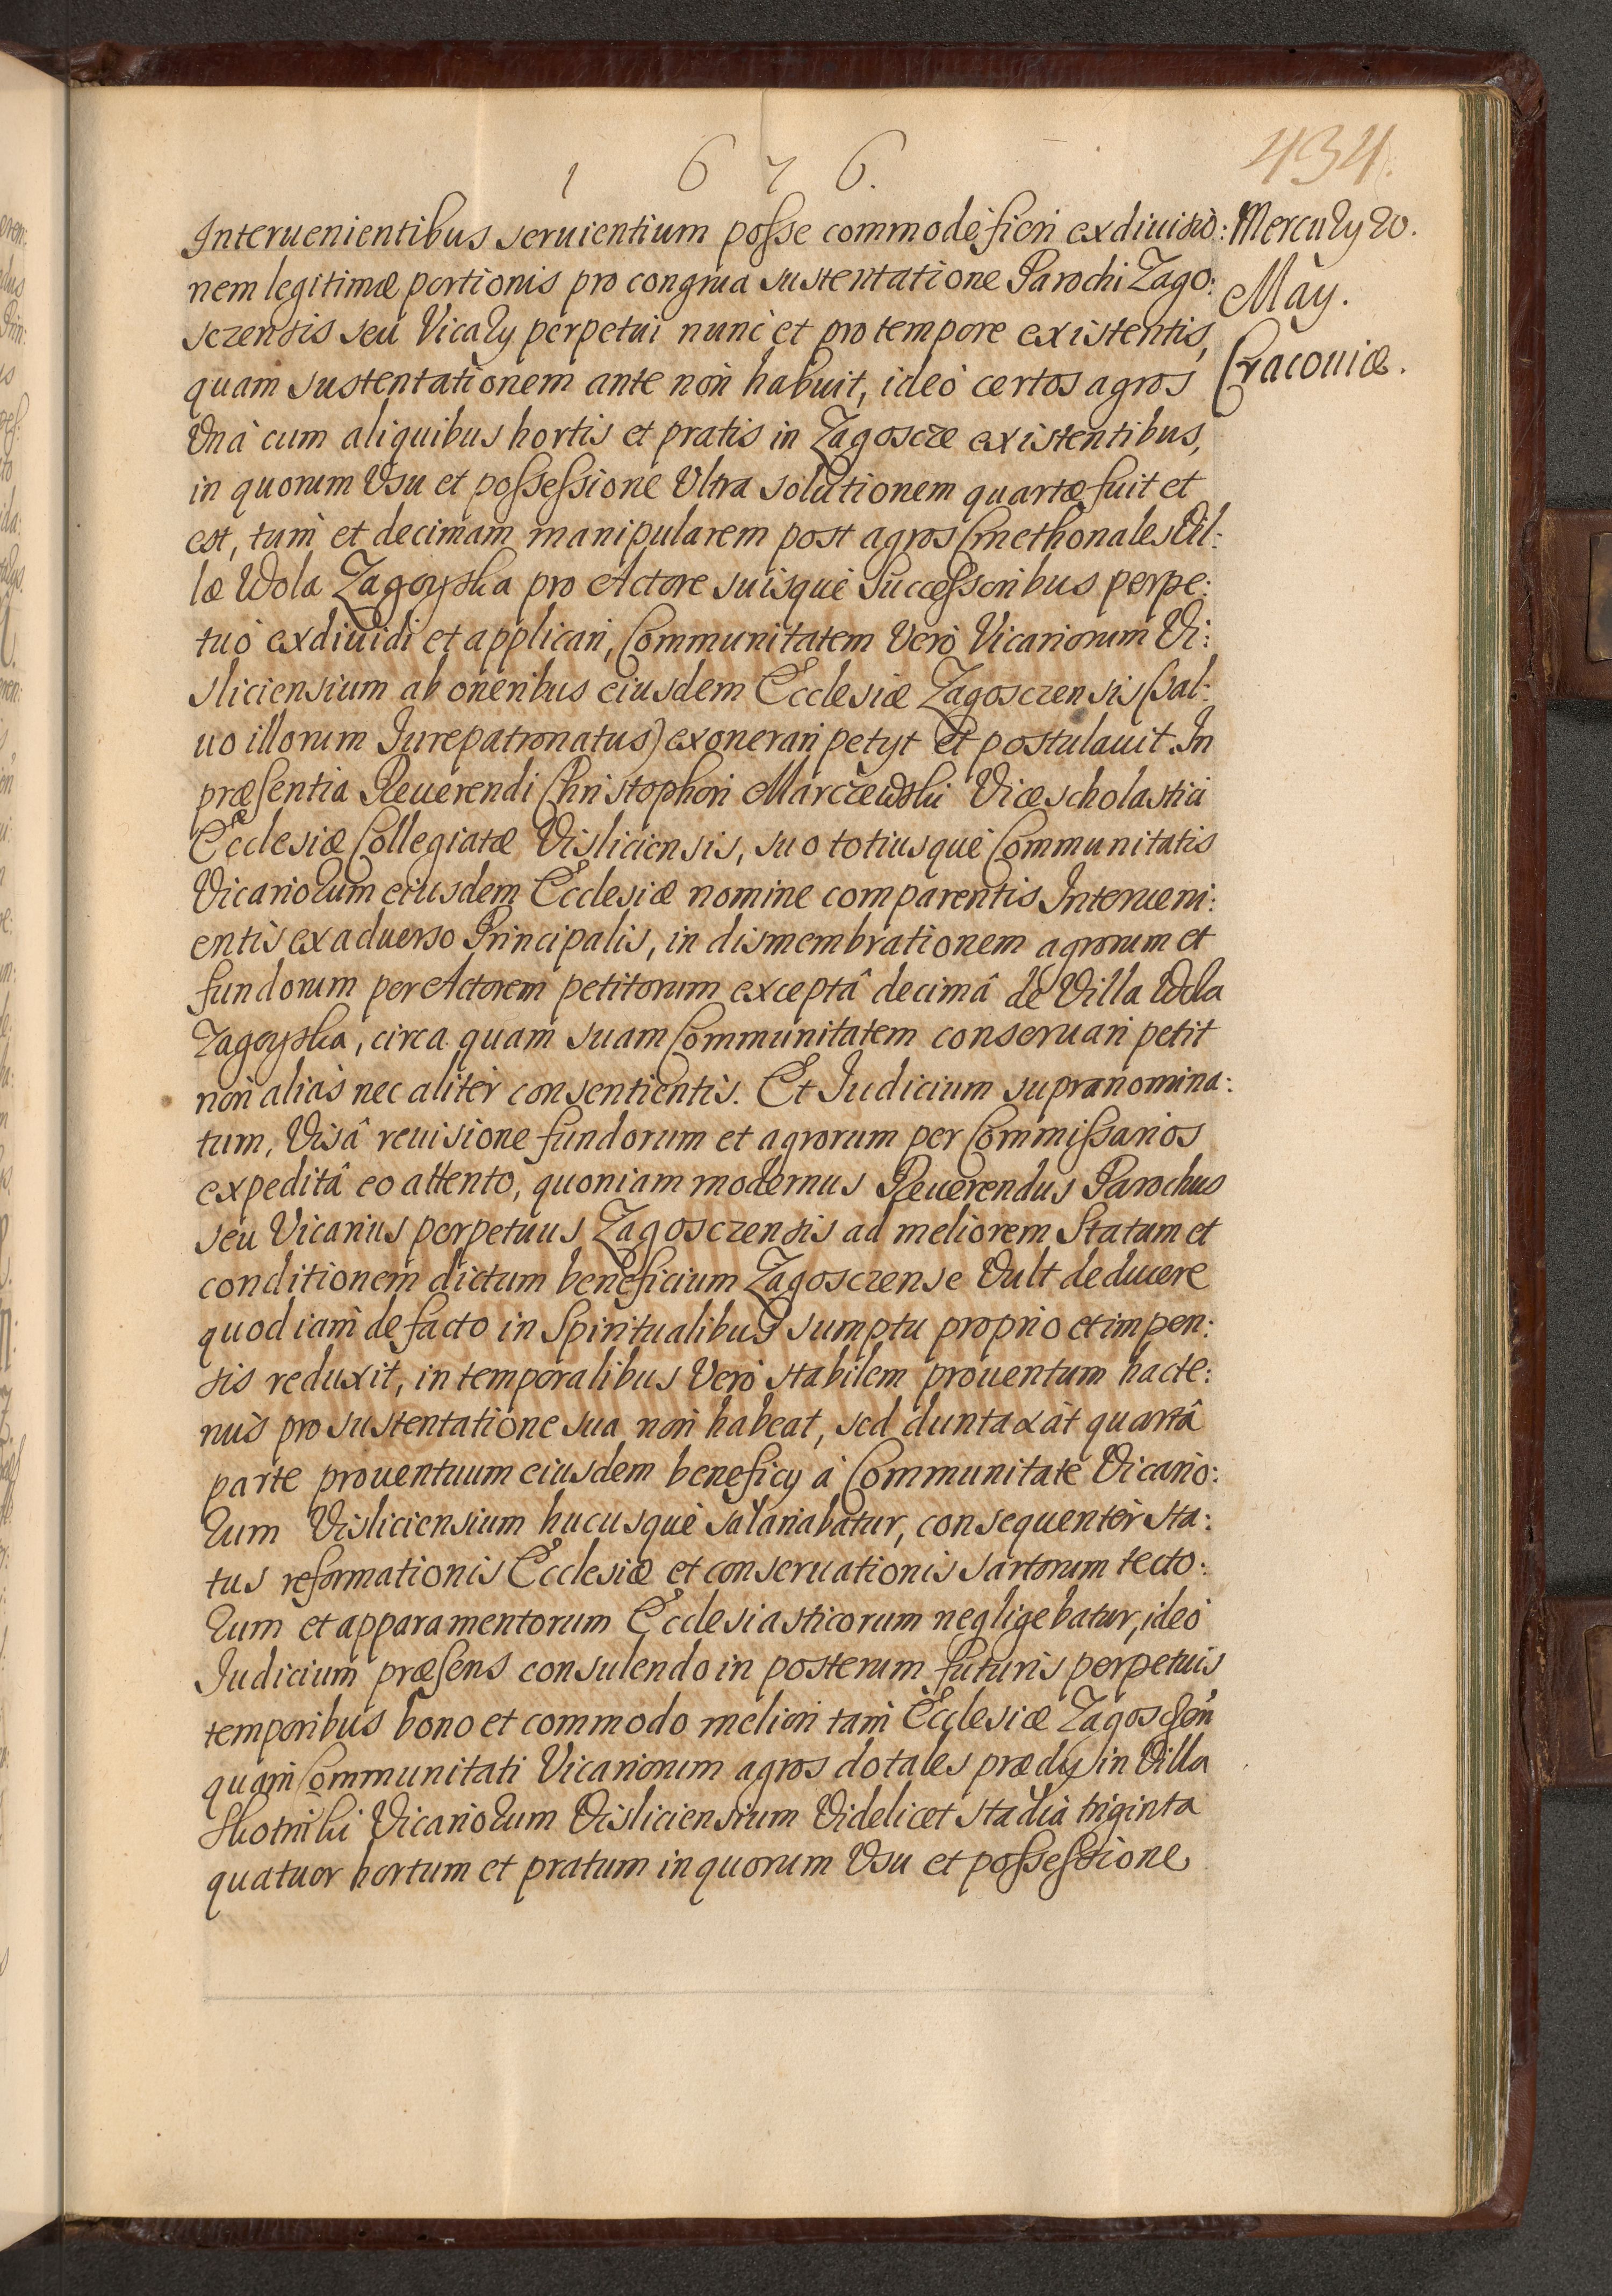 1676.
434.
Interuenientibus seruientium posse commodè fieri exdiuisio:
nem legitimæ portionis pro congrua sustentatione Parochi Zago:
sczensis seu Vicarij perpetui nunc et pro tempore existentis,
quam sustentationem ante non habuit, ideò certos agros
Vnà cum aliquibus hortis et pratis in Zagoscze existentibus,
in quorum Vsu et possessione Vltra solutionem quartæ fuit et
est, tum et decimam manipularem post agros Cmethonales Vil:
læ Wola Zagoyska pro Actore suisque Successoribus perpe:
tuò exdiuidi et applicari, Communitatem Verò Vicariorum Vi:
sliciensium ab oneribus eiusdem Ecclesiæ Zagosczensis (Sal:
uo illorum Iurepatronatus) exonerari petijt et postulauit. In
præsentia Reuerendi Christophori Marczewski Vicescholastici
Ecclesiæ Collegiatæ Visliciensis, suo totiusque Communitatis
Vicariorum eiusdem Ecclesiæ nomine comparentis Interueni:
entis ex aduerso Principalis, in dismembrationem agrorum et
fundorum per Actorem petitorum exceptâ decimâ de Villa Wola
Zagoyska, circa quam suam Communitatem conseruari petit
non aliàs nec aliter consentientis. Et Iudicium supranomina:
tum, Visâ reuisione fundorum et agrorum per Commissarios
expeditâ eo attento, quoniam modernus Reuerendus Parochus
seu Vicarius perpetuus Zagosczensis ad meliorem Statum et
conditionem dictum beneficium Zagosczense Vult deducere
quod iam de facto in Spiritualibus sumptu proprio et impen:
sis reduxit, in temporalibus Verò stabilem prouentum hacte:
nus pro sustentatione sua non habeat, sed duntaxat quartâ
parte prouentuum eiusdem beneficij à Communitate Vicario:
rum Visliciensium hucusque salariabatur, consequenter sta:
tus reformationis Ecclesiæ et conseruationis sartorum tecto:
rum et apparamentorum Ecclesiasticorum negligebatur, ideò
Iudicium præsens consulendo in posterum futuris perpetuis
temporibus bono et commodo meliori tam Ecclesiæ Zagosczen
quam Communitati Vicariorum agros dotales prædij in Villa
Skotniki Vicariorum Visliciensium Videlicet stadia triginta
quatuor hortum et pratum in quorum Vsu et possessione
Mercurij 20.
May.
Cracouiæ.